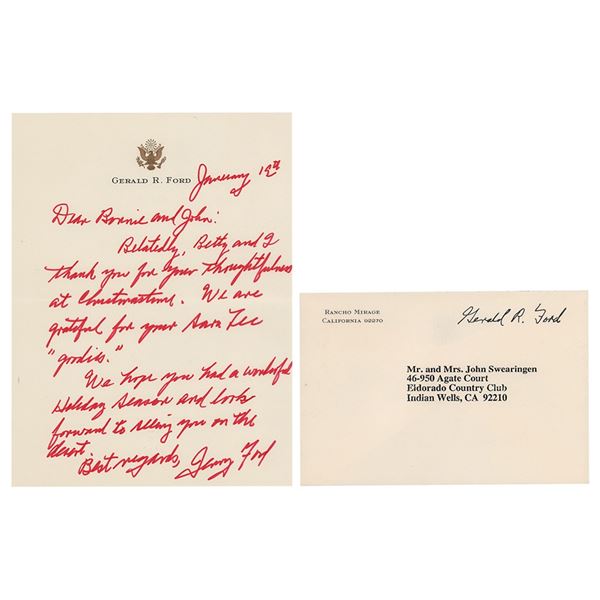 GERALD R. FORD
January 12th
Dear Bonnie and John:
Belatedly, Betty and I
thank you for your thoughtfulness
at Christmastime. We are
grateful for your Sara Lee
"goodies."
We hope you had a wonderful
Holiday Season and look
forward to seeing you on the
desert.
Best regards, Jerry Ford
RANCHO MIRAGE
CALIFORNIA 92270
Gerald R. Ford
Mr. and Mrs. John Swearingen
46-950 Agate Court
Eldorado Country Club
Indian Wells, CA 92210